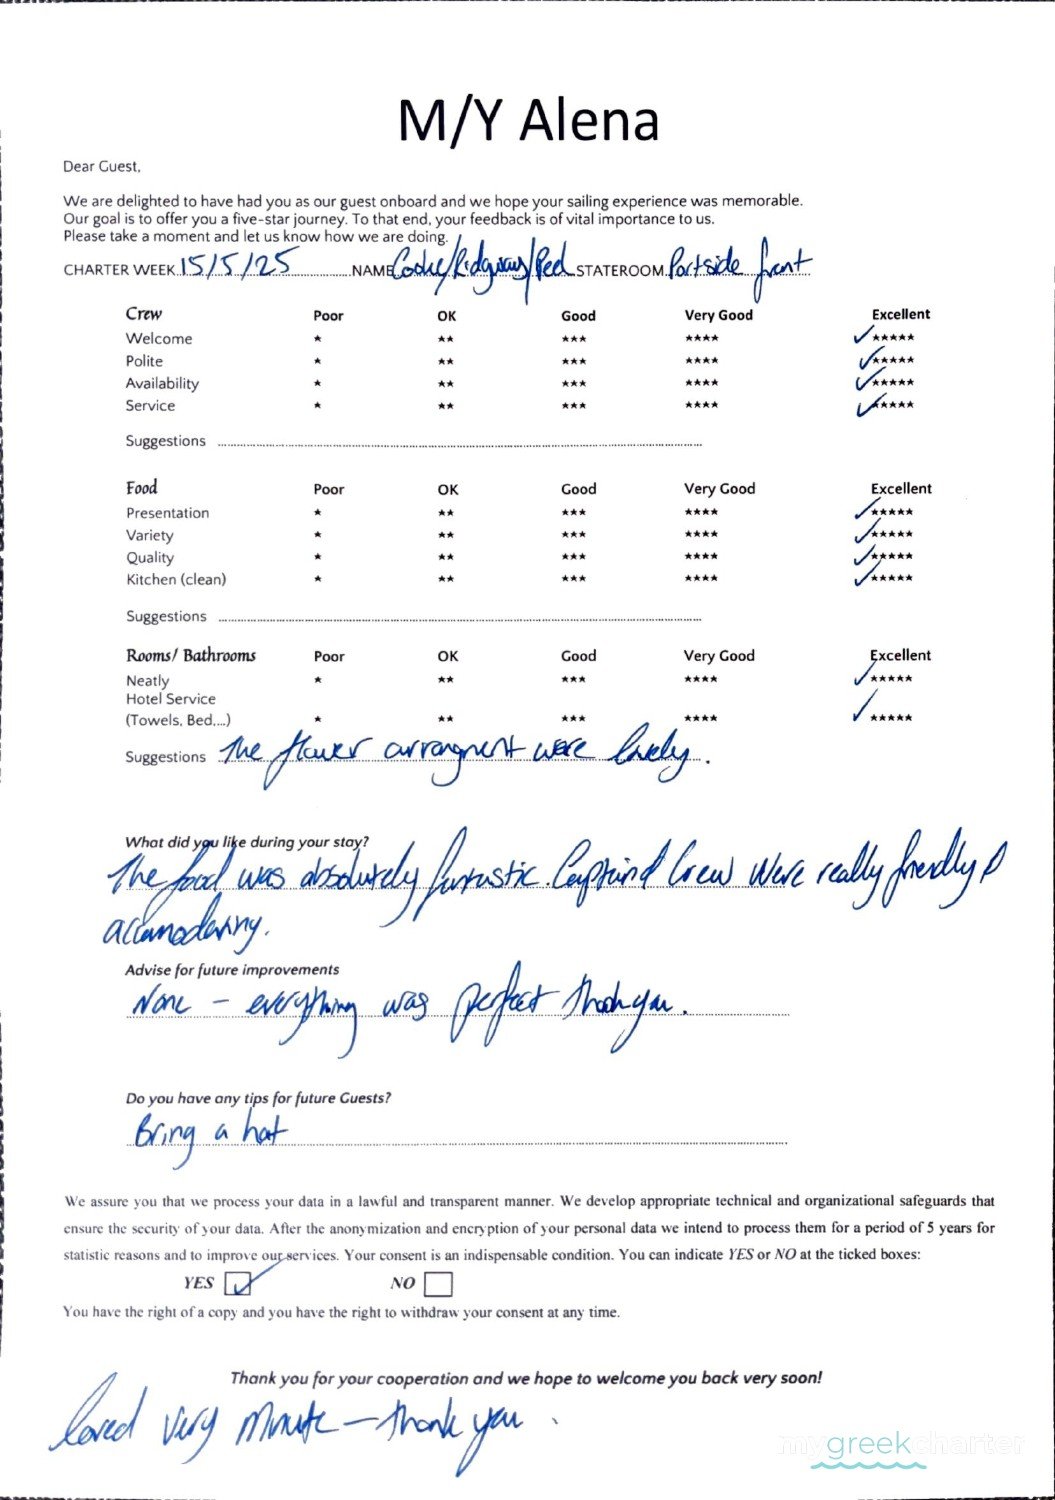 M/Y Alena
Dear Guest,
We are delighted to have had you as our guest onboard and we hope your sailing experience was memorable.
Our goal is to offer you a five-star journey. To that end, your feedback is of vital importance to us.
Please take a moment and let us know how we are doing.
CHARTER WEEK 15/5/25 NAME Cooke/Ridgway/ STATEROOM Portside front
Crew Poor OK Good Very Good Excellent
Welcome * ** *** **** ✓*****
Polite * ** *** **** ✓*****
Availability * ** *** **** ✓*****
Service * ** *** **** ✓*****
Suggestions
Food Poor OK Good Very Good Excellent
Presentation * ** *** **** ✓*****
Variety * ** *** **** ✓*****
Quality * ** *** **** ✓*****
Kitchen (clean) * ** *** **** ✓*****
Suggestions
Rooms/ Bathrooms Poor OK Good Very Good Excellent
Neatly * ** *** **** ✓*****
Hotel Service
(Towels, Bed,...) * ** *** **** ✓*****
Suggestions The flower arrangment were lovely.
What did you like during your stay?
The food was absolutely fantastic. Captain & Crew were really friendly &
accomodating.
Advise for future improvements
None - everything was perfect thank you.
Do you have any tips for future Guests?
Bring a hat
We assure you that we process your data in a lawful and transparent manner. We develop appropriate technical and organizational safeguards that
ensure the security of your data. After the anonymization and encryption of your personal data we intend to process them for a period of 5 years for
statistic reasons and to improve our services. Your consent is an indispensable condition. You can indicate YES or NO at the ticked boxes:
YES ✓ NO
You have the right of a copy and you have the right to withdraw your consent at any time.
Thank you for your cooperation and we hope to welcome you back very soon!
loved very minute - thank you.
mygreekcharter